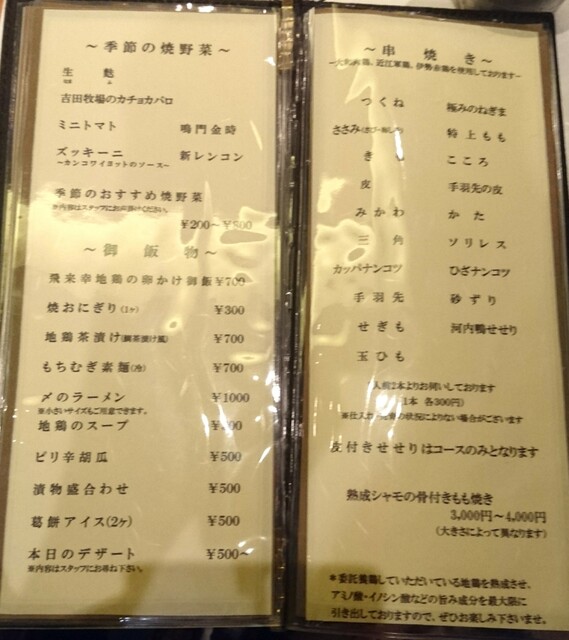 ～季節の焼野菜～
生 麩
吉田牧場のカチョカバロ
ミニトマト 鳴門金時
ズッキーニ 新レンコン
～カンコワイヨットのソース～
季節のおすすめ焼野菜
※内容はスタッフにお声掛けください。
¥200～¥800
～御飯物～
飛来幸地鶏の卵かけ御飯 ¥700
焼おにぎり(1ヶ) ¥300
地鶏茶漬け(鯛茶漬け風) ¥700
もちむぎ素麺(冷) ¥700
〆のラーメン ¥1000
※小さいサイズもご用意できます。
地鶏のスープ
ピリ辛胡瓜 ¥500
漬物盛合わせ ¥500
葛餅アイス(2ヶ) ¥500
本日のデザート ¥500～
※内容はスタッフにお尋ね下さい。
～串焼き～
近江軍鶏、伊勢赤鶏を使用しております～
つくね 極みのねぎま
ささみ 特上もも
きも こころ
皮 手羽先の皮
みかわ かた
三角 ソリレス
カッパナンコツ ひざナンコツ
手羽先 砂ずり
せぎも 河内鴨せせり
玉ひも
人前2本よりお伺いしております
1本 各300円)
※仕入れ の状況によりない場合がございます
皮付きせせりはコースのみとなります
熟成シャモの骨付きもも焼き
3,000円～4,000円
(大きさによって異なります)
＊委託養鶏していただいている地鶏を熟成させ、
アミノ酸・イノシン酸などの旨み成分を最大限に
引き出しておりますので、ぜひお楽しみ下さいませ。